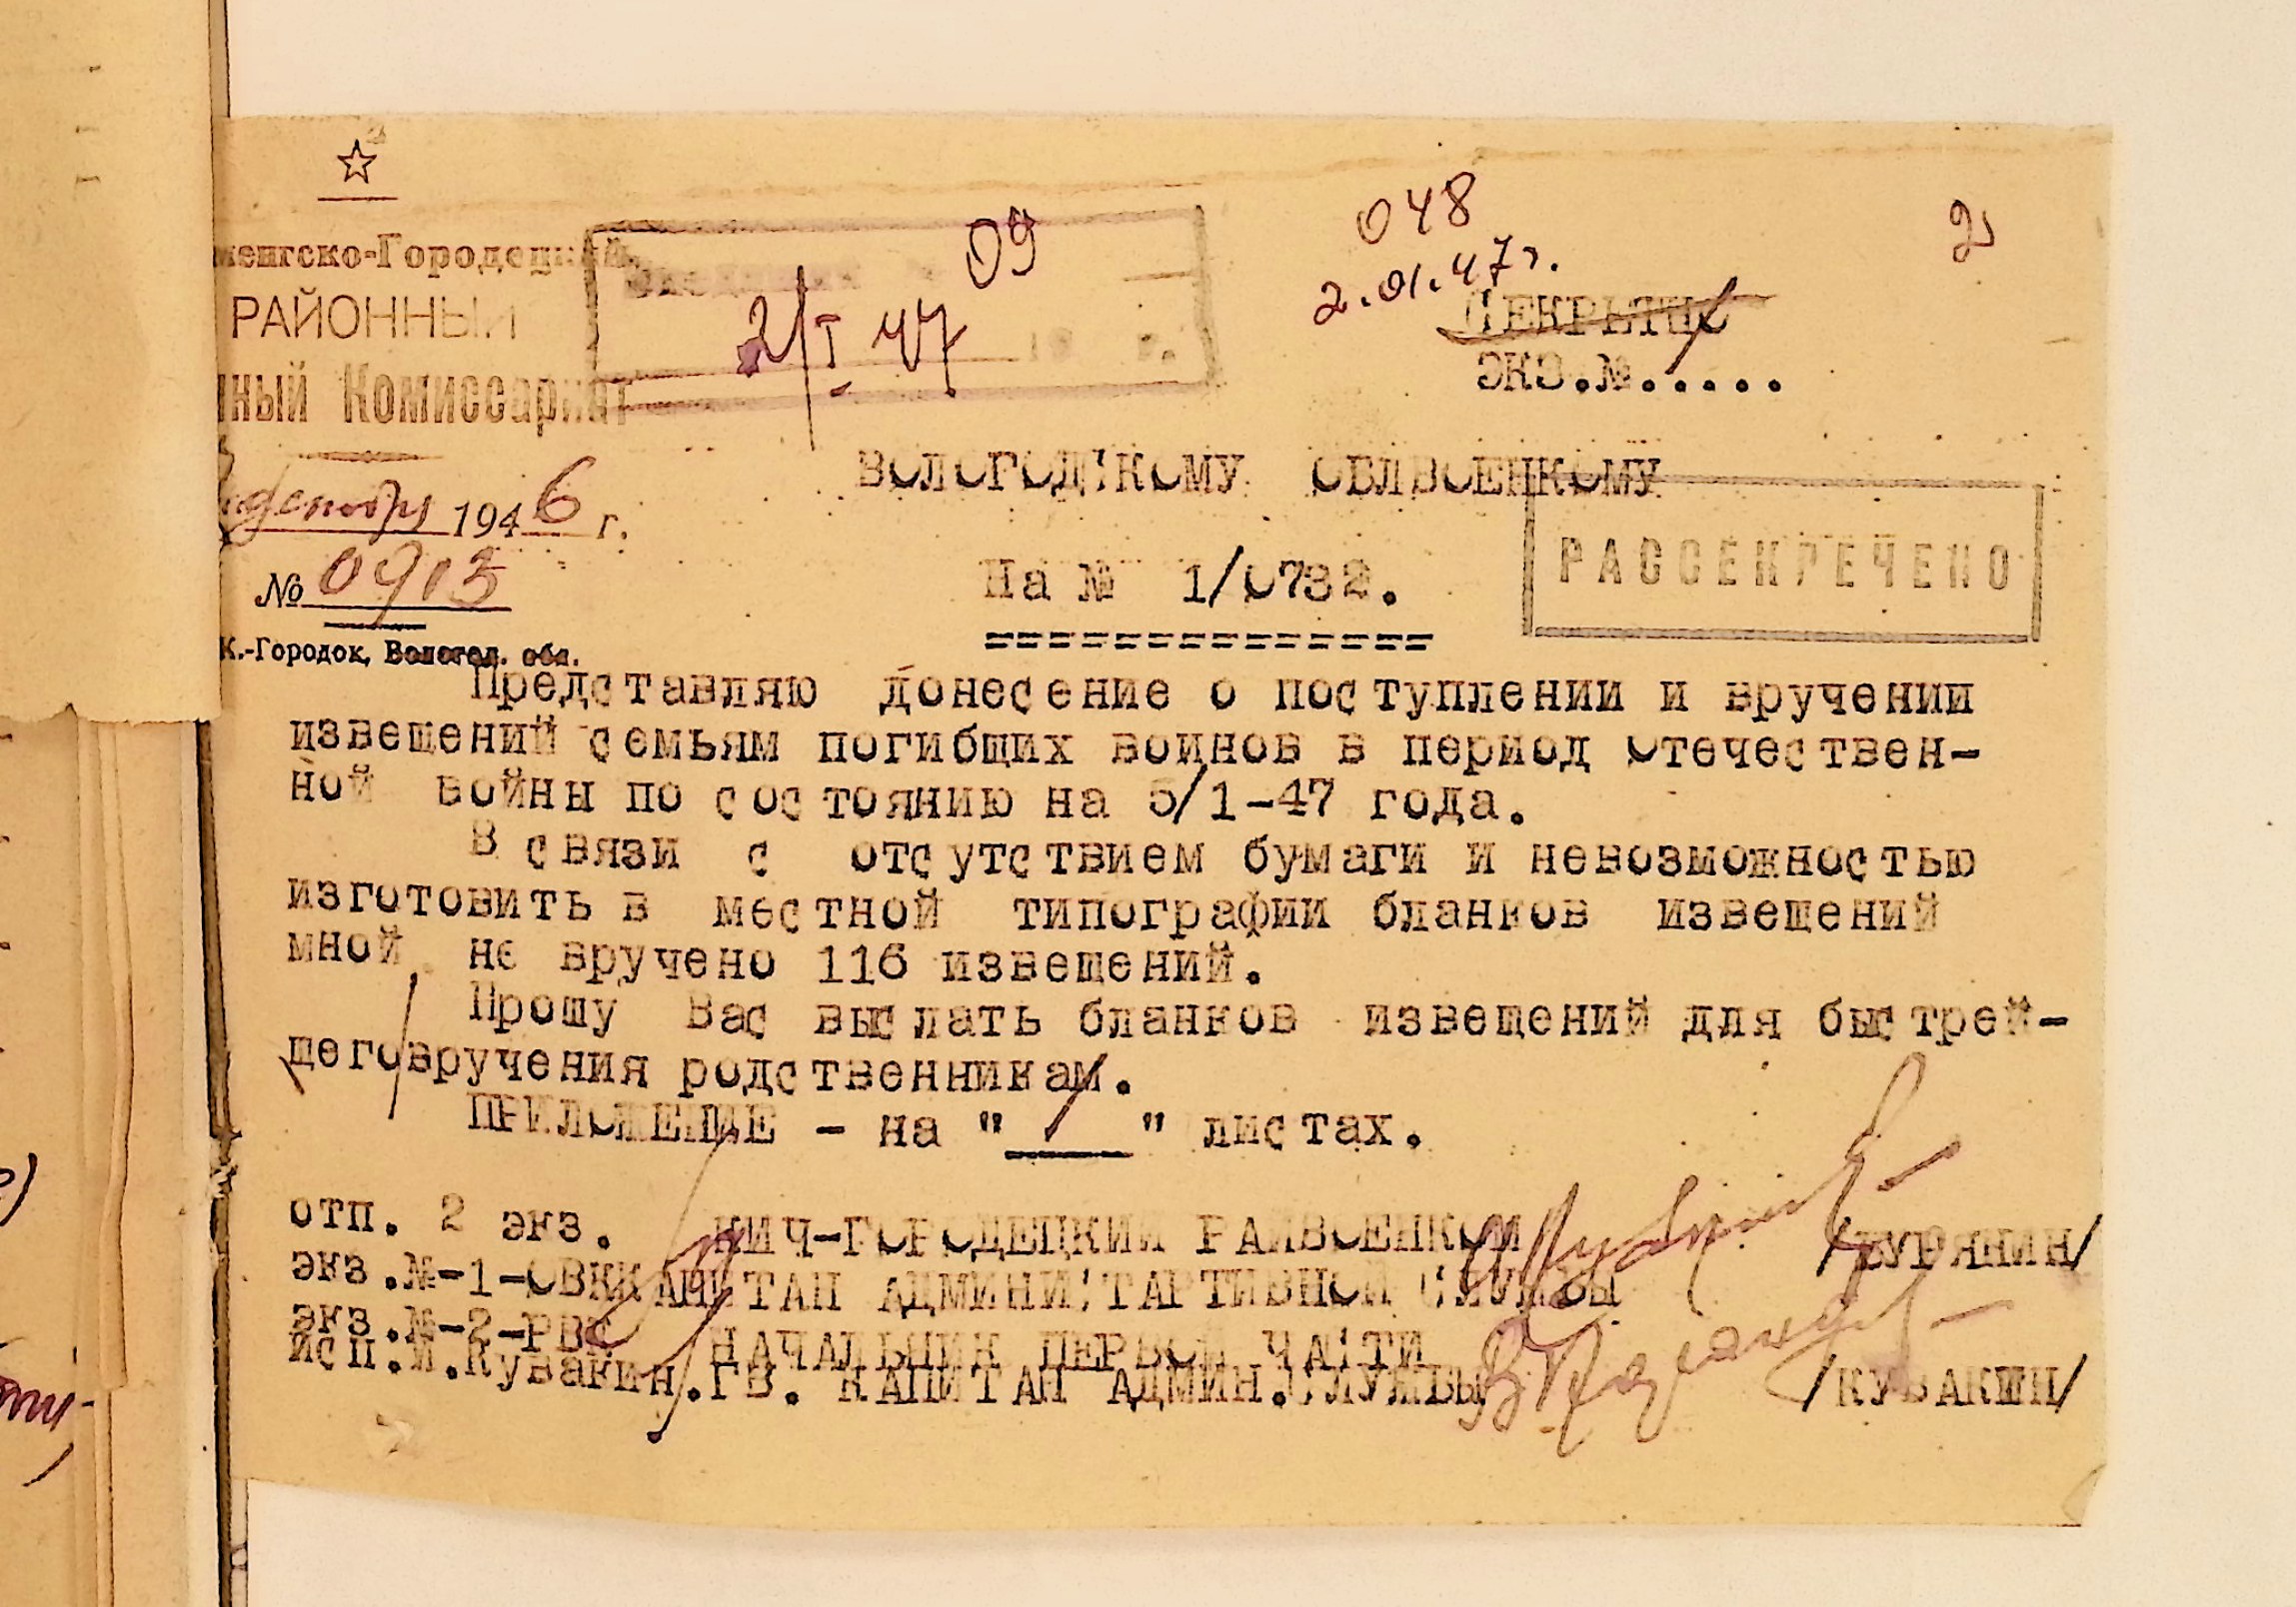 ☆
менгско-Городецкий
РАЙОННЫЙ
нный Комиссариат
декабря 1946 г.
№ 0913
К.-Городок, Вологод. обл.
09
2/I 47
048
2.01.47г.
2
СЕКРЕТНО
ЭКЗ.№.....
ВОЛОГОДСКОМУ ОБЛВОЕНКОМУ
РАССЕКРЕЧЕНО
На № 1/0732.
==============
Представляю донесение о поступлении и вручении
извещений семьям погибщих воинов в период отечествен-
ной войны по состоянию на 5/1-47 года.
В связи с отсутствием бумаги и невозможностью
изготовить в местной типографии бланков извещений
мной не вручено 116 извещений.
Прошу Вас выслать бланков извещений для быстрей-
щеговручения родственникам.
ПРИЛОЖЕНИЕ - на " 1 " листах.
отп. 2 экз. КИЧ-ГОРОДЕЦКИЙ РАЙВОЕНКОМ
экз.№-1-ОВК КАПИТАН АДМИНИСТАРТИВНОЙ СЛУЖБЫ /БУРЯНИН/
экз.№-2-РВК НАЧАЛЬНИК ПЕРВОЙ ЧАСТИ
исп.И.Кувакин. ГВ. КАПИТАН АДМИН.СЛУЖБЫ /КУВАКИН/